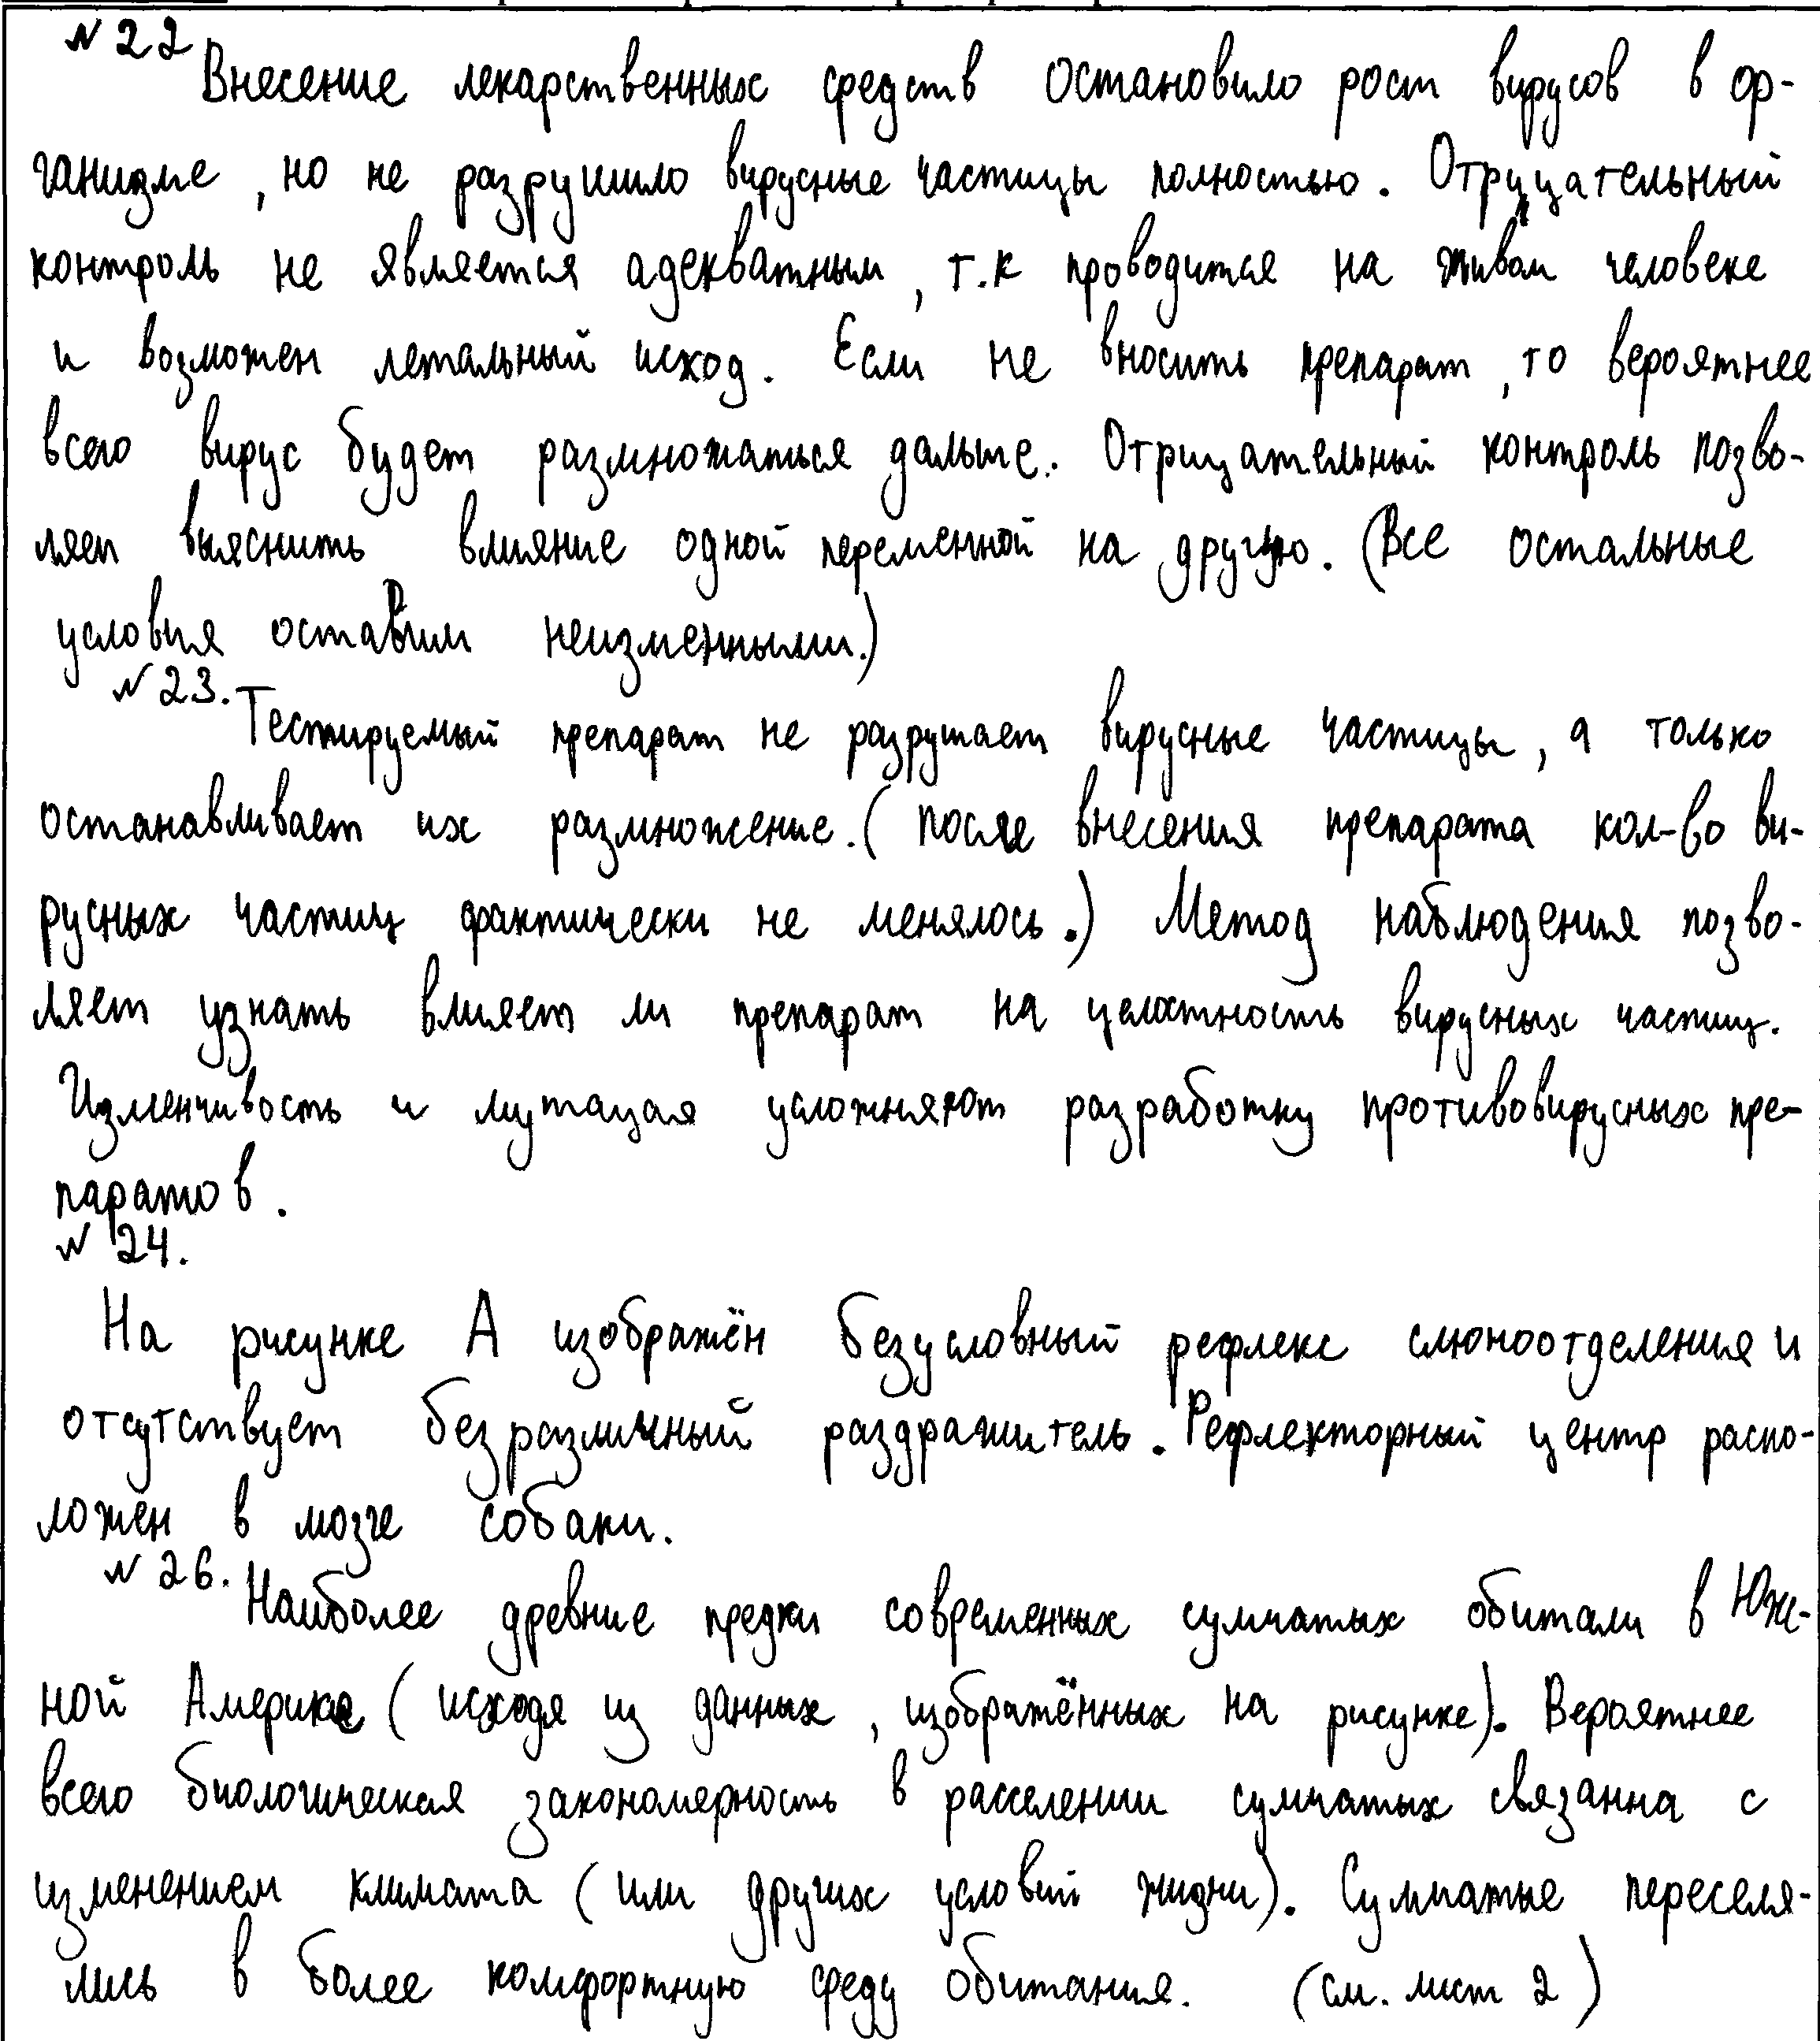 № 22
Внесение лекарственных средств остановило рост вирусов в ор-
ганизме, но не разрушило вирусные частицы полностью. Отрицательный
контроль не является адекватным, т.к проводится на живом человеке
и возможен летальный исход. Если не вносить препарат, то вероятнее
всего вирус будет размножаться дальше. Отрицательный контроль позво-
ляет выяснить влияние одной переменной на другую. (Все остальные
условия оставим неизменными.)
№ 23.
Тестируемый препарат не разрушает вирусные частицы, а только
останавливает их размножение. (после внесения препарата кол-во ви-
русных частиц фактически не менялось.) Метод наблюдения позво-
ляет узнать влияет ли препарат на целостность вирусных частиц.
Изменчивость и мутация усложняют разработку противовирусных пре-
паратов.
№ 24.
На рисунке А изображён безусловный рефлекс слюноотделения и
отсутствует безразличный раздражитель. Рефлекторный центр распо-
ложен в мозге собаки.
№ 26.
Наиболее древние предки современных сумчатых обитали в Юж-
ной Америке (исходя из данных, изображённых на рисунке). Вероятнее
всего биологическая закономерность в расселении сумчатых связанна с
изменением климата (или других условий жизни). Сумчатые переселя-
лись в более комфортную среду обитания. (см. лист 2)